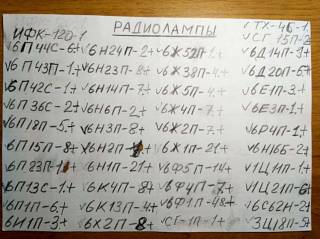 РАДИОЛАМПЫ
ИФК-120-1
√6П44С-6+
√6П43П-1.+
√6П42С-1+
√6П36С-2+
√6П18П-5.+
√6П15П-8+
√6П23П-1+
√6П13С-1.+
√6П1П-6.+
6И1П-3+
√6Н24П-2+
√6Н23П-8+
√6Н14П-7+
√6Н6П-2+
√6Н3П-8+
√6Н2П-
√6Н1П-21+
√6К4П-8+
√6К13П-4+
√6Х2П-8
√6Ж52П-1+
√6Ж38П-4.+
√6Ж5П-4.+
√6Ж4П-7.+
√6Ж2П-7.+
√6Ж1П-21+
√6Ф5П-14+
√6Ф4П-7.+
√6Ф1П-48+
СГ-1П-1+
√ТХ-4Б-1.
√СГ15П-2
√6Д14П-9+
√6Д20П-6+
√6Е1П-7.+
√6Е3П-1.+
√6Р4П-1+
√6Н16Б-2+
√1Ц11П-1+
√1Ц21П-6+
√6С62Н-2+
√3Ц18П-5+